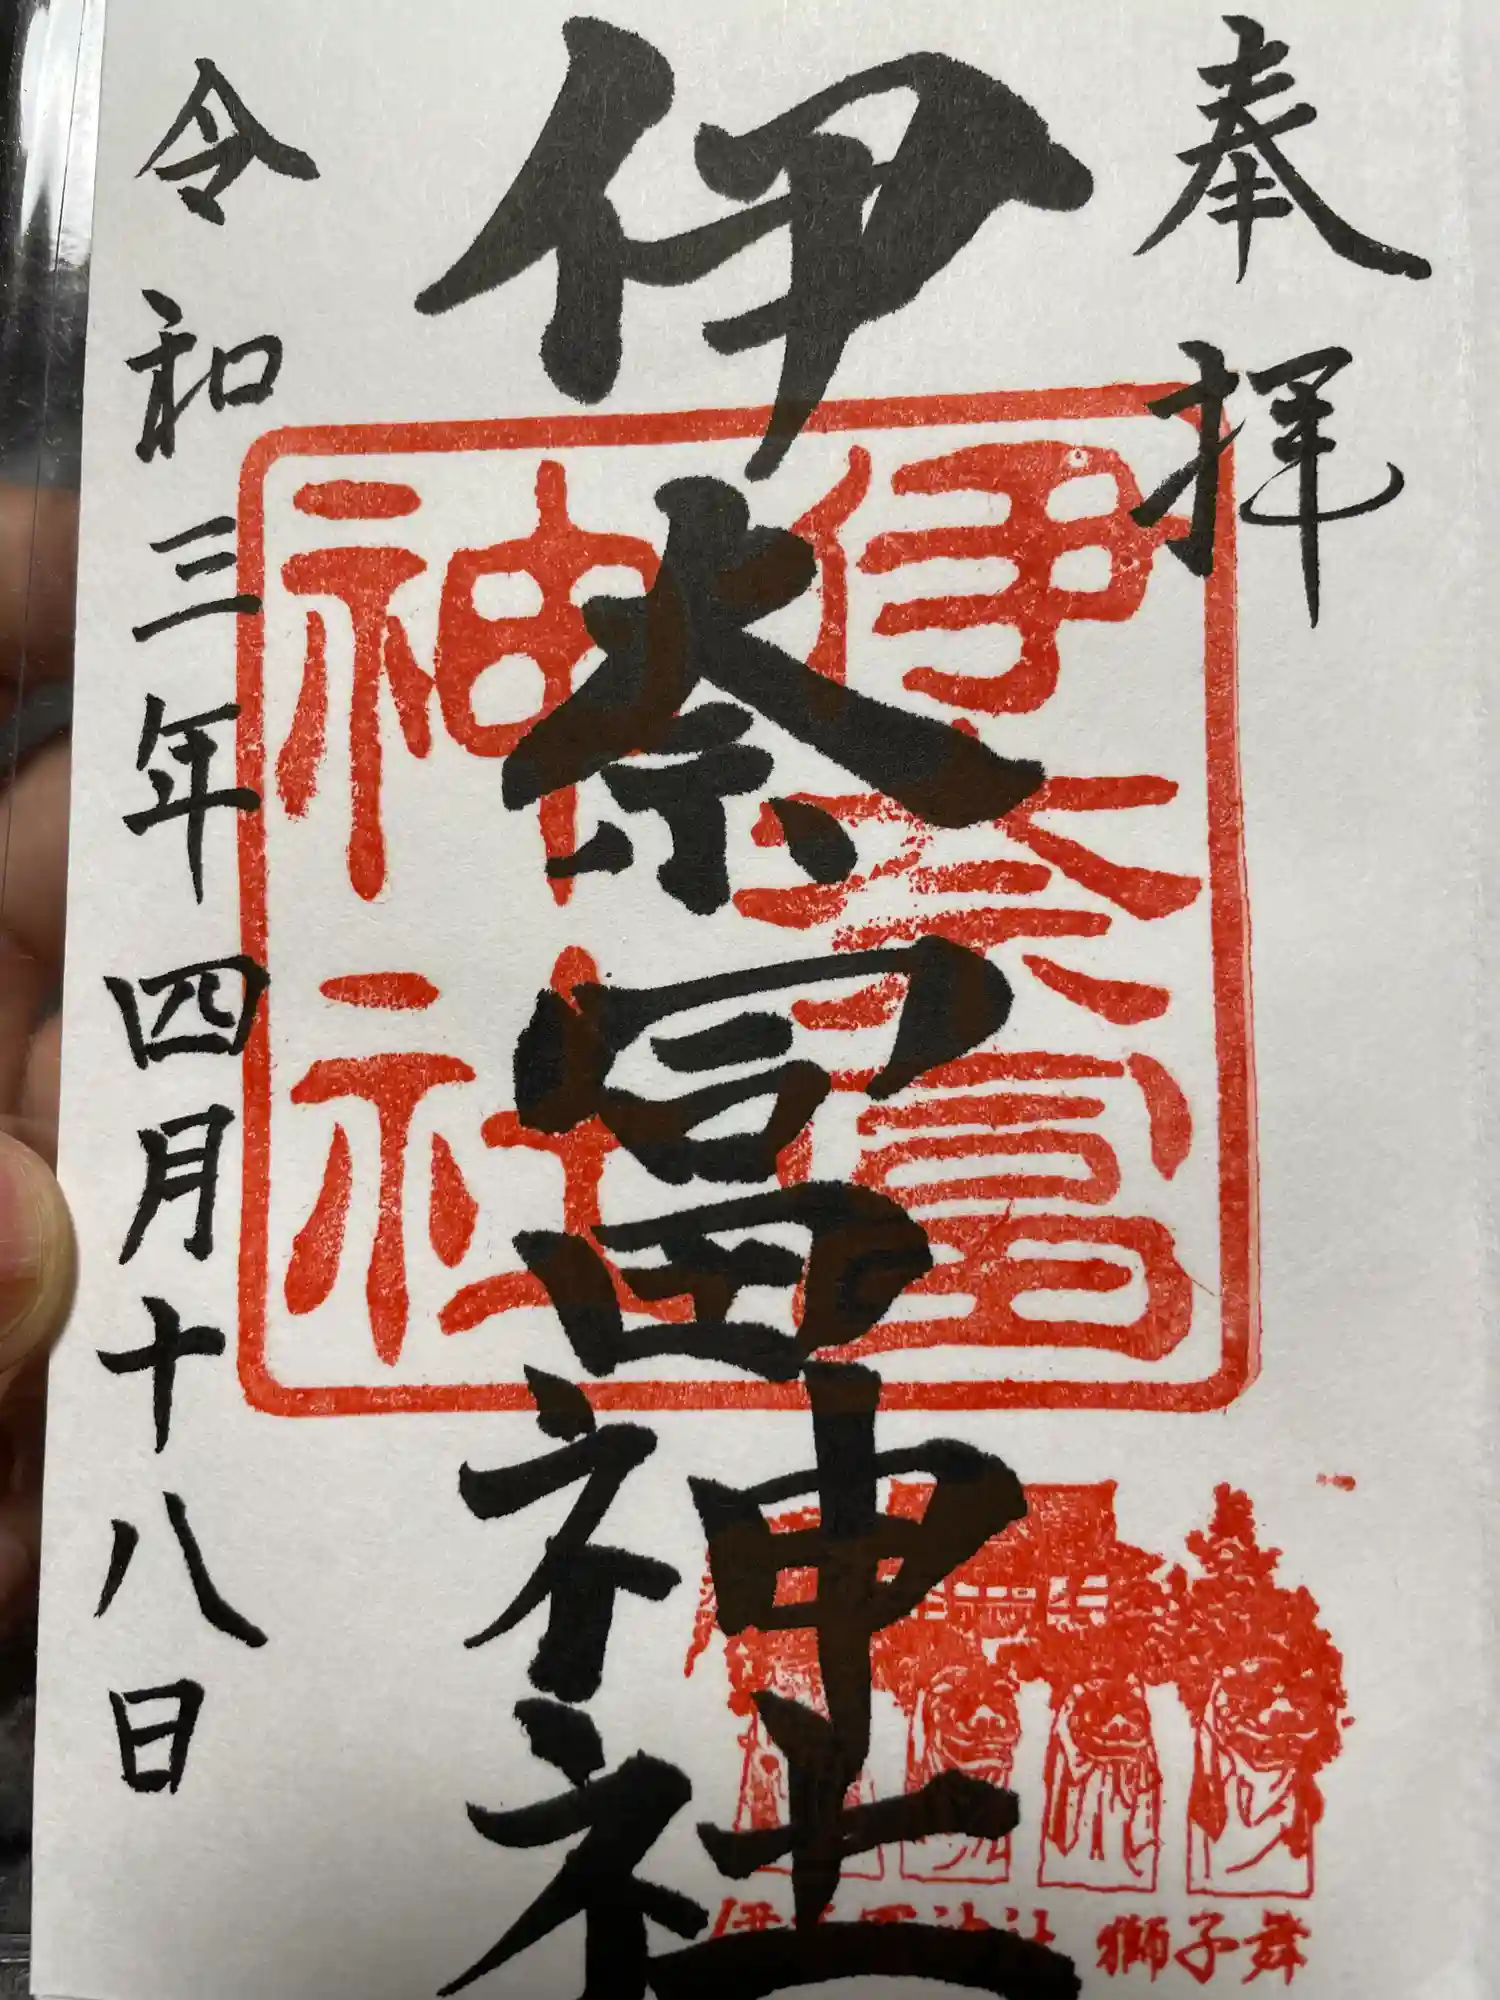 奉拝
伊奈冨神社
伊奈冨
神社
伊奈冨神社 獅子舞
令和三年四月十八日